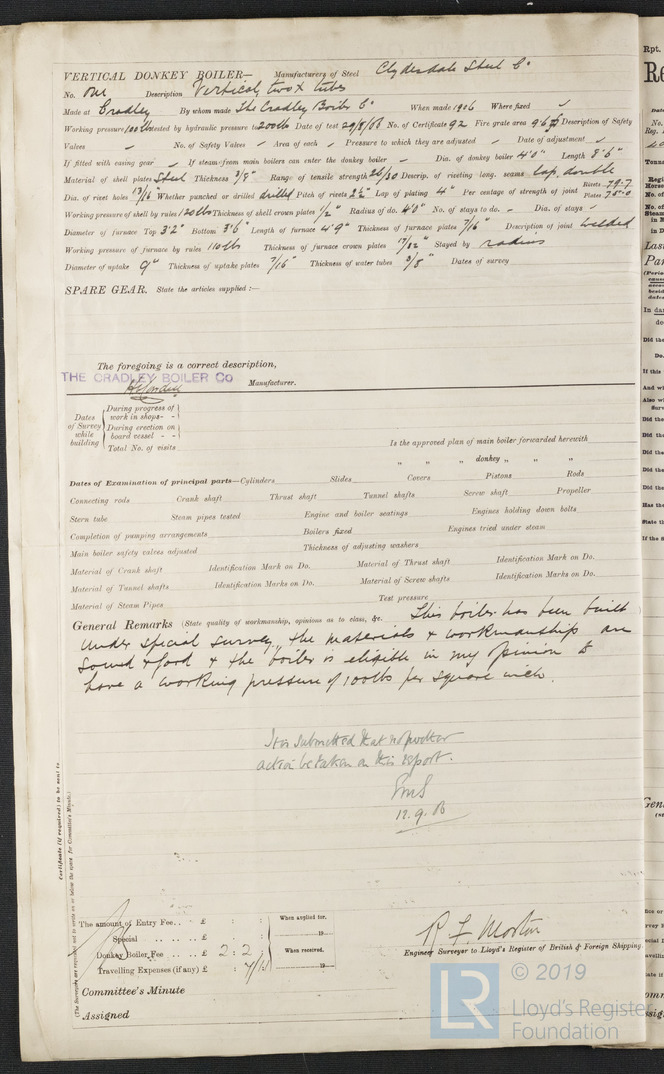 VERTICAL DONKEY BOILER— Manufacturers of Steel Clydesdale Steel Co
No. One Description Vertical, two x tubes
Made at Cradley By whom made The Cradley Boiler Co When made 1906 Where fixed ✓
Working pressure 100 lbs tested by hydraulic pressure to 200 lbs Date of test 29/8/06 No. of Certificate 92 Fire grate area 9.6 Description of Safety
Valves – No. of Safety Valves – Area of each – Pressure to which they are adjusted – Date of adjustment –
If fitted with easing gear – If steam from main boilers can enter the donkey boiler – Dia. of donkey boiler 4'0" Length 8'6"
Material of shell plates Steel Thickness 3/8" Range of tensile strength 26/30 Descrip. of riveting long. seams lap, double
Dia. of rivet holes 13/16" Whether punched or drilled drilled Pitch of rivets 2½" Lap of plating 4" Per centage of strength of joint Rivets 79.7 Plates 75.0
Working pressure of shell by rules 120 lbs Thickness of shell crown plates 1/2" Radius of do. 4'0" No. of stays to do. – Dia. of stays –
Diameter of furnace Top 3'2" Bottom 3'6" Length of furnace 4'9" Thickness of furnace plates 7/16" Description of joint welded
Working pressure of furnace by rules 110 lbs Thickness of furnace crown plates 17/32" Stayed by radius
Diameter of uptake 9" Thickness of uptake plates 7/16" Thickness of water tubes 3/8" Dates of survey
SPARE GEAR. State the articles supplied :—
The foregoing is a correct description,
THE CRADLEY BOILER Co Manufacturer.
Dates of Survey while building
During progress of work in shops - -
During erection on board vessel - -
Total No. of visits
Is the approved plan of main boiler forwarded herewith
" " " donkey " " "
Dates of Examination of principal parts—Cylinders Slides Covers Pistons Rods
Connecting rods Crank shaft Thrust shaft Tunnel shafts Screw shaft Propeller
Stern tube Steam pipes tested Engine and boiler seatings Engines holding down bolts
Completion of pumping arrangements Boilers fixed Engines tried under steam
Main boiler safety valves adjusted Thickness of adjusting washers
Material of Crank shaft Identification Mark on Do. Material of Thrust shaft Identification Mark on Do.
Material of Tunnel shafts Identification Marks on Do. Material of Screw shafts Identification Marks on Do.
Material of Steam Pipes Test pressure
General Remarks (State quality of workmanship, opinions as to class, &c. This boiler has been built
under special survey, the materials & workmanship are
sound & good & the boiler is eligible in my opinion to
have a working pressure of 100 lbs per square inch.
It is submitted that no further
action be taken on this report.
12.9.06
Certificate (if required) to be sent to
(The Surveyors are requested not to write on or below the space for Committee's Minute.)
The amount of Entry Fee.. £ : :
Special .. .. .. £ : :
Donkey Boiler Fee .. .. £ 2 : 2 :
Travelling Expenses (if any) £ :
When applied for,
19
When received,
19
R. F. Morton
Engineer Surveyor to Lloyd's Register of British & Foreign Shipping
Committee's Minute
Assigned
LR
© 2019
Lloyd's Register
Foundation
Rpt.